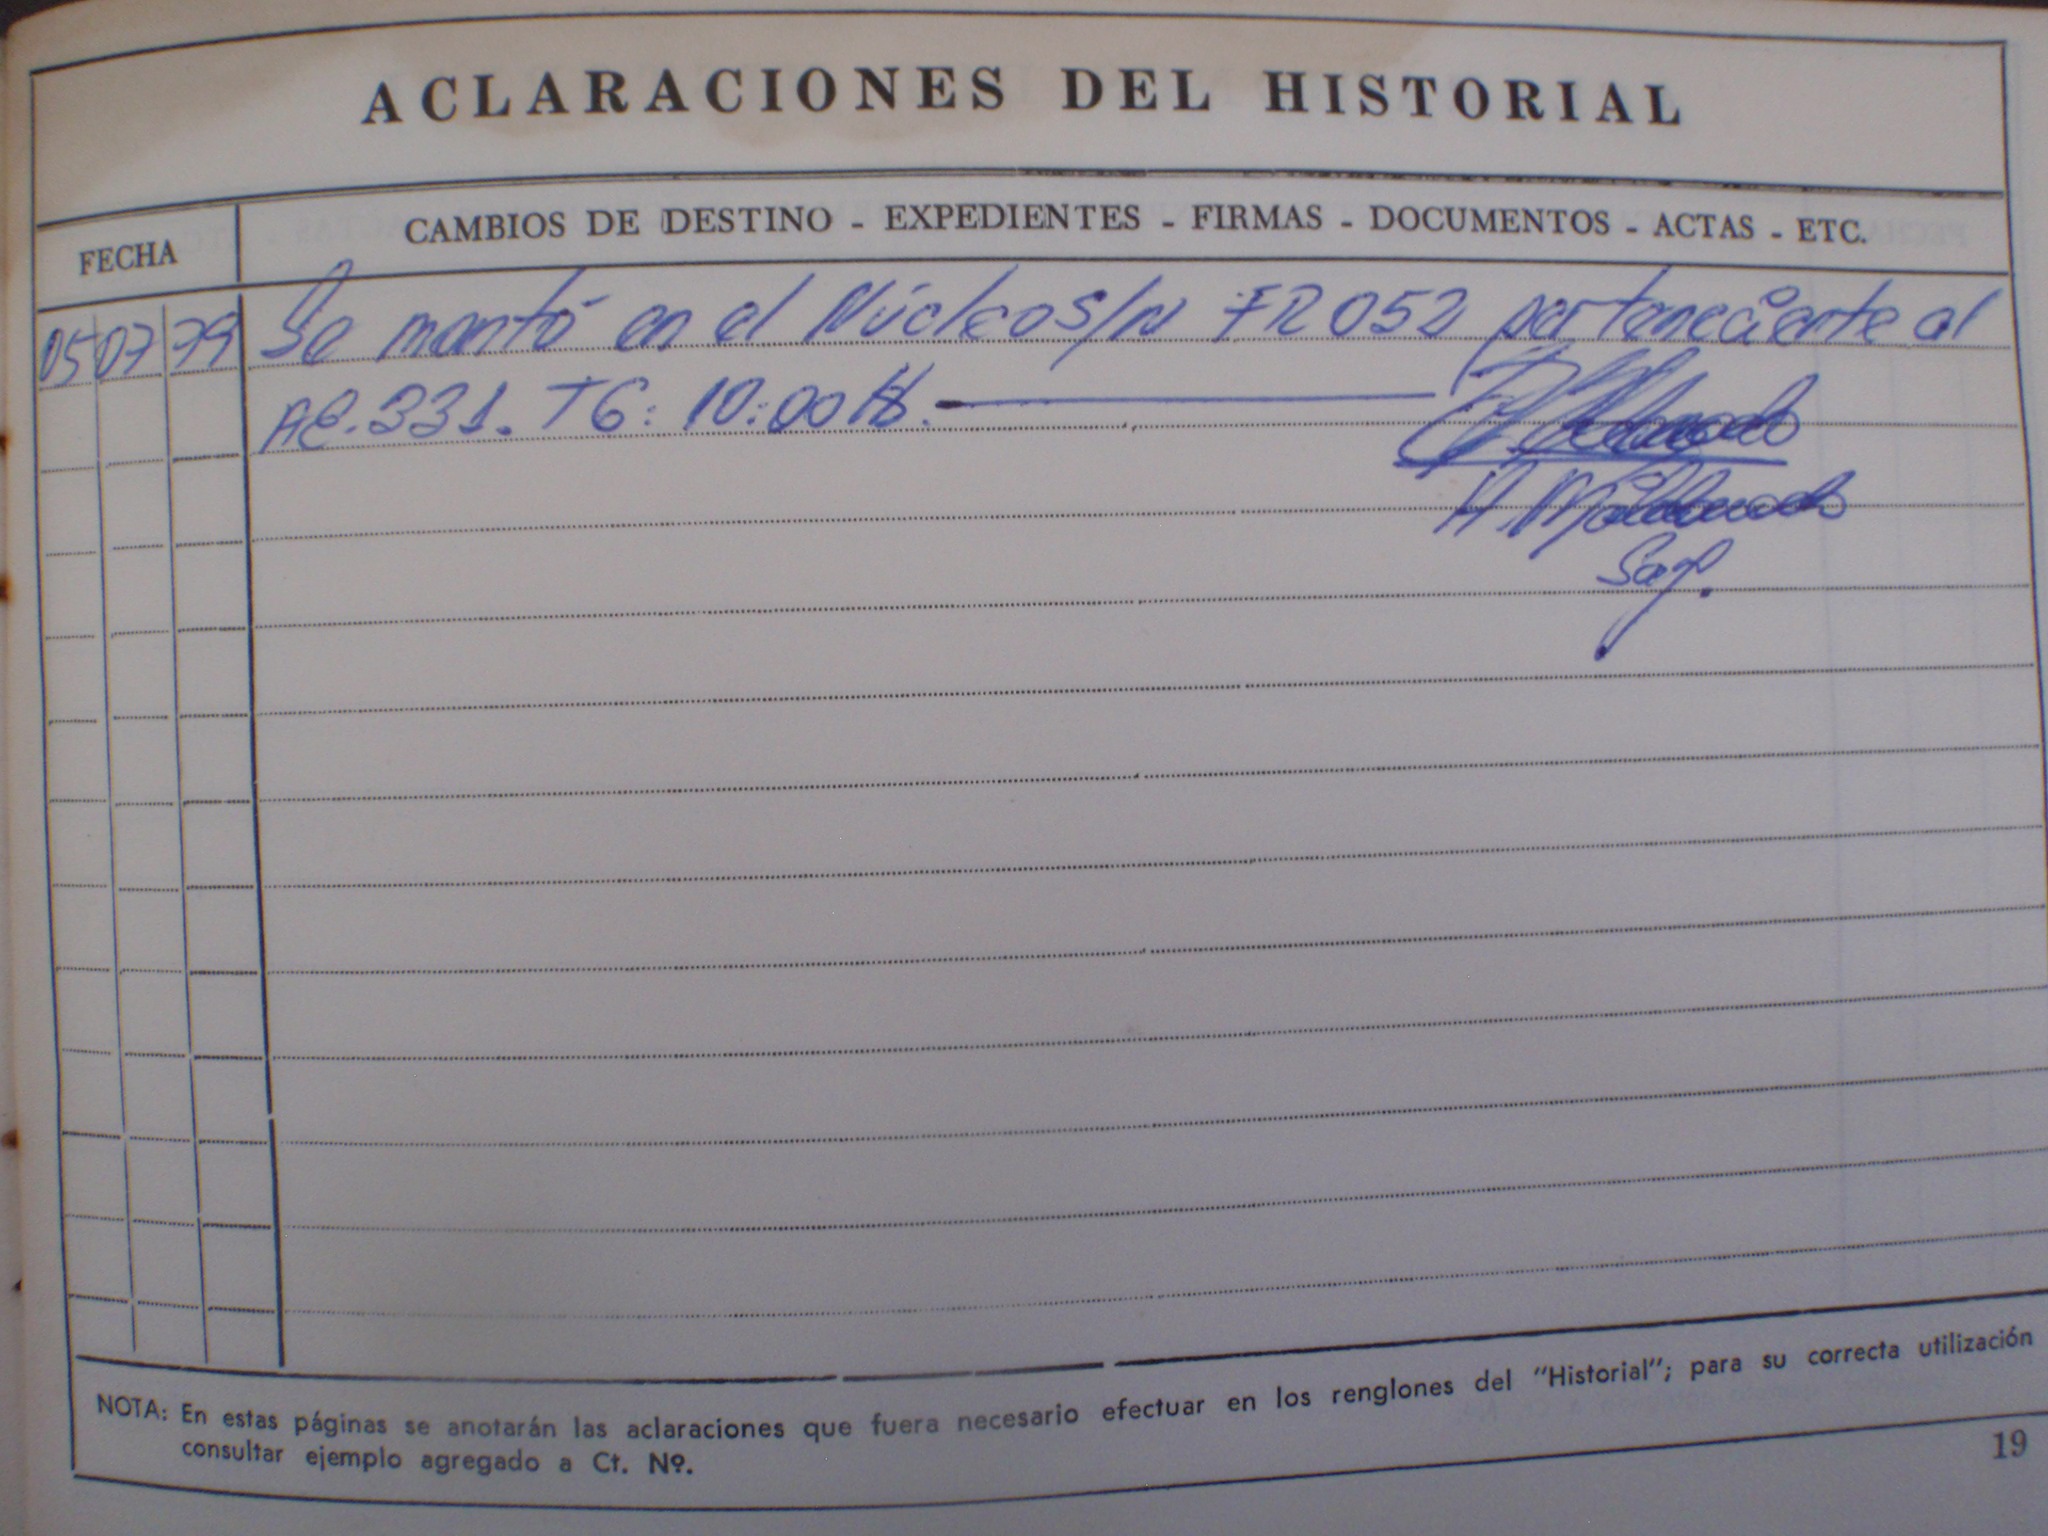 ACLARACIONES DEL HISTORIAL
FECHA
CAMBIOS DE DESTINO - EXPEDIENTES - FIRMAS - DOCUMENTOS - ACTAS - ETC.
05 07 79 Se montó en el Núcleo s/n FR052 perteneciente al
AE.331. TG: 10:00 Hs.
NOTA: En estas páginas se anotarán las aclaraciones que fuera necesario efectuar en los renglones del "Historial"; para su correcta utilización
consultar ejemplo agregado a Ct. Nº.
19